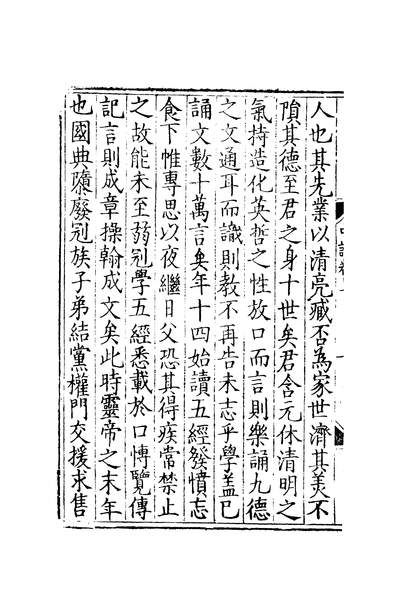 人也其先業以清亮臧否為家世濟其美不
隕其德至君之身十世矣君含元休清明之
氣持造化英哲之性故口而言則樂誦九德
之文通耳而識則教不再告未志乎學蓋已
誦文數十萬言矣年十四始讀五經發憤忘
食下惟專思以夜繼日父恐其得疾常禁止
之故能未至弱冠學五經悉載於口博覽傳
記言則成章操翰成文矣此時靈帝之末年
也國典隳廢冠族子弟結黨權門交援求售